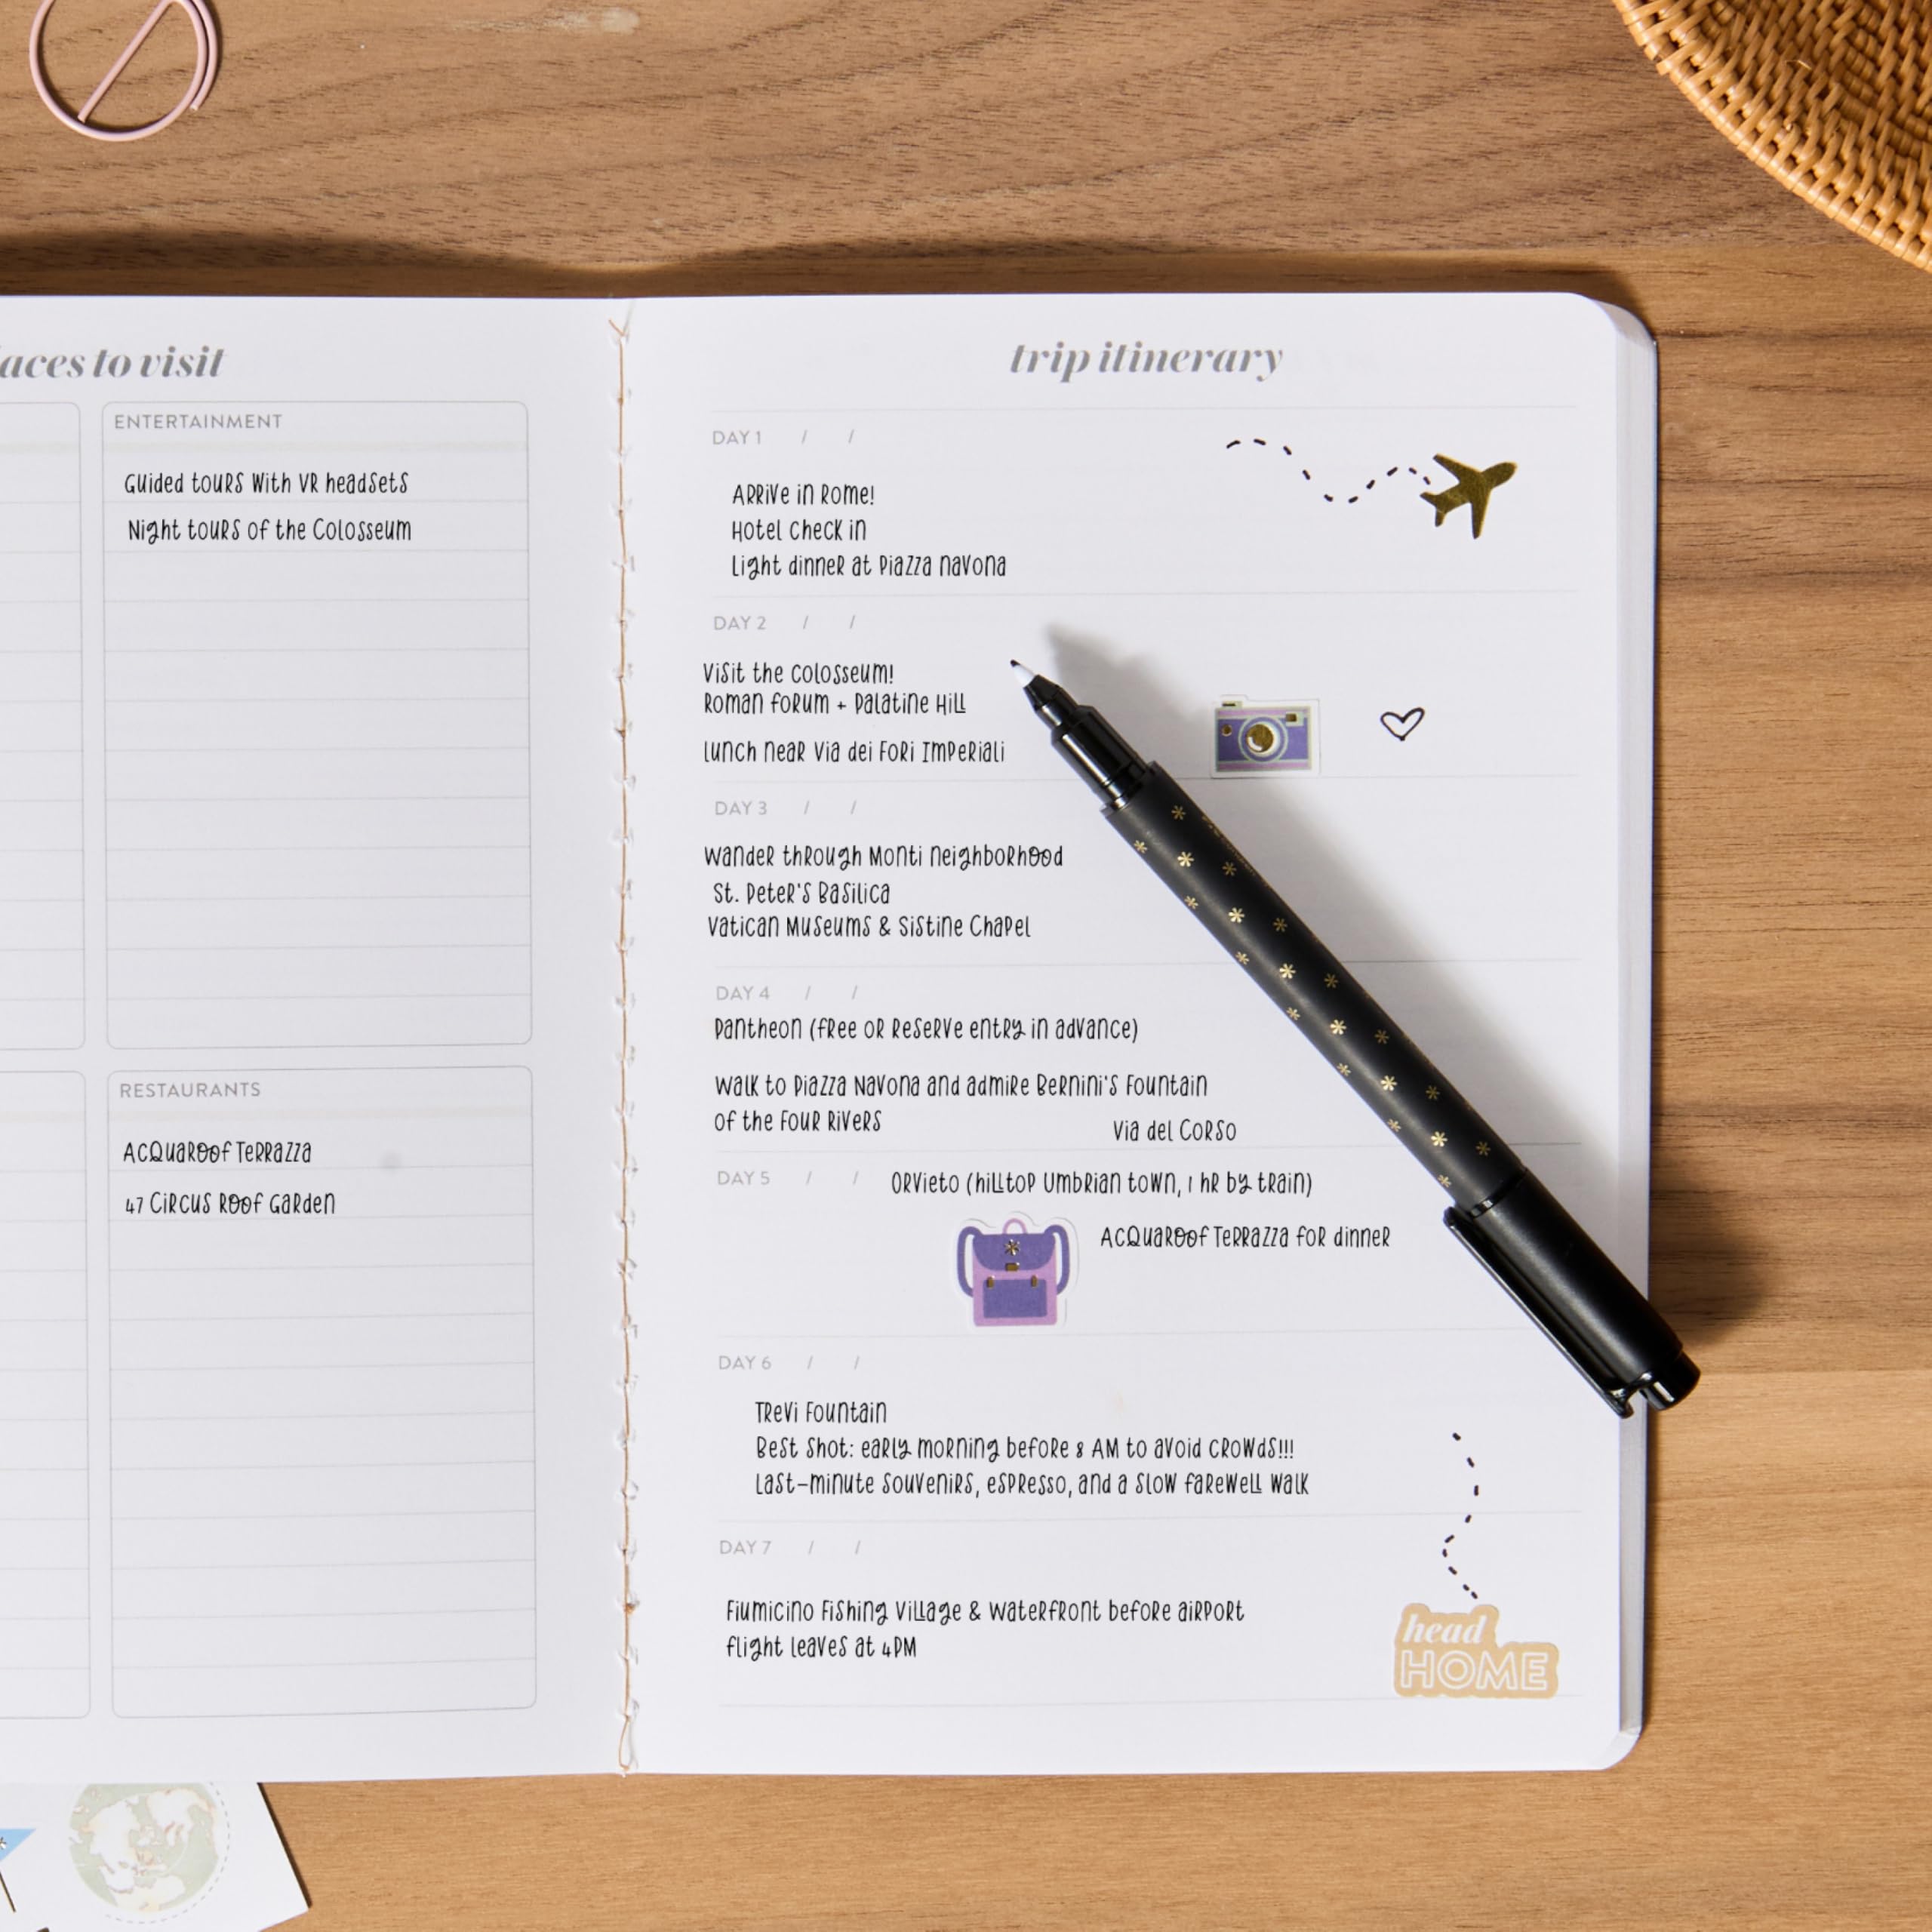 aces to visit
ENTERTAINMENT
Guided tours with VR headsets
Night tours of the Colosseum
RESTAURANTS
Acquaroof Terrazza
47 Circus Roof Garden
trip itinerary
DAY 1 / /
Arrive in Rome!
Hotel check in
Light dinner at Piazza Navona
DAY 2 / /
Visit the Colosseum!
Roman Forum + Palatine Hill
lunch near Via dei Fori Imperiali
DAY 3 / /
wander through Monti neighborhood
St. Peter's Basilica
Vatican Museums & Sistine Chapel
DAY 4 / /
Pantheon (free or reserve entry in advance)
walk to Piazza Navona and admire Bernini's Fountain
of the Four Rivers
Via del Corso
DAY 5 / / Orvieto (hilltop Umbrian town, 1 hr by train)
Acquaroof Terrazza for dinner
DAY 6 / /
Trevi Fountain
Best shot: early morning before 8 AM to avoid crowds!!!
Last-minute souvenirs, espresso, and a slow farewell walk
DAY 7 / /
Fiumicino Fishing Village & waterfront before airport
flight leaves at 4PM
head
HOME